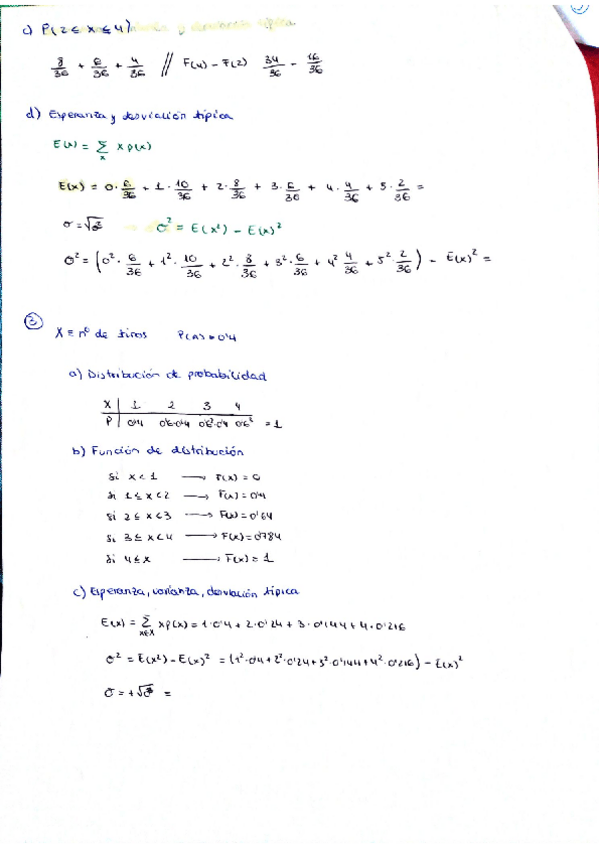 c) P(2 ≤ X ≤ 4)
8/36 + 6/36 + 4/36 // F(4) - F(2) 34/36 - 16/36
d) Esperanza y desviación típica
E(x) = Σx x p(x)
E(x) = 0 · 6/36 + 1 · 10/36 + 2 · 8/36 + 3 · 6/36 + 4 · 4/36 + 5 · 2/36 =
σ = √σ² σ² = E(x²) - E(x)²
σ² = (0² · 6/36 + 1² · 10/36 + 2² · 8/36 + 3² · 6/36 + 4² 4/36 + 5² · 2/36) - E(x)² =
③
X ≡ nº de tiros P(A) = 0'4
a) Distribución de probabilidad
X | 1 2 3 4
P | 0'4 0'6·0'4 0'6²·0'4 0'6³ = 1
b) Función de distribución
Si x < 1 → F(x) = 0
Si 1 ≤ x < 2 → F(x) = 0'4
Si 2 ≤ x < 3 → F(x) = 0'64
Si 3 ≤ x < 4 → F(x) = 0'784
Si 4 ≤ x → F(x) = 1
c) Esperanza, varianza, desviación típica
E(x) = Σx∈X x p(x) = 1·0'4 + 2·0'24 + 3·0'144 + 4·0'216
σ² = E(x²) - E(x)² = (1²·0'4 + 2²·0'24 + 3²·0'144 + 4²·0'216) - E(x)²
σ = +√σ² =